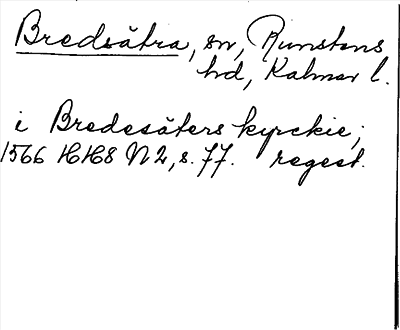 Bredsätra, sn, Runstens
hd, Kalmar l.
i Bredesäters kyrckie;
1566 HH8 N2, s. 77. regest.